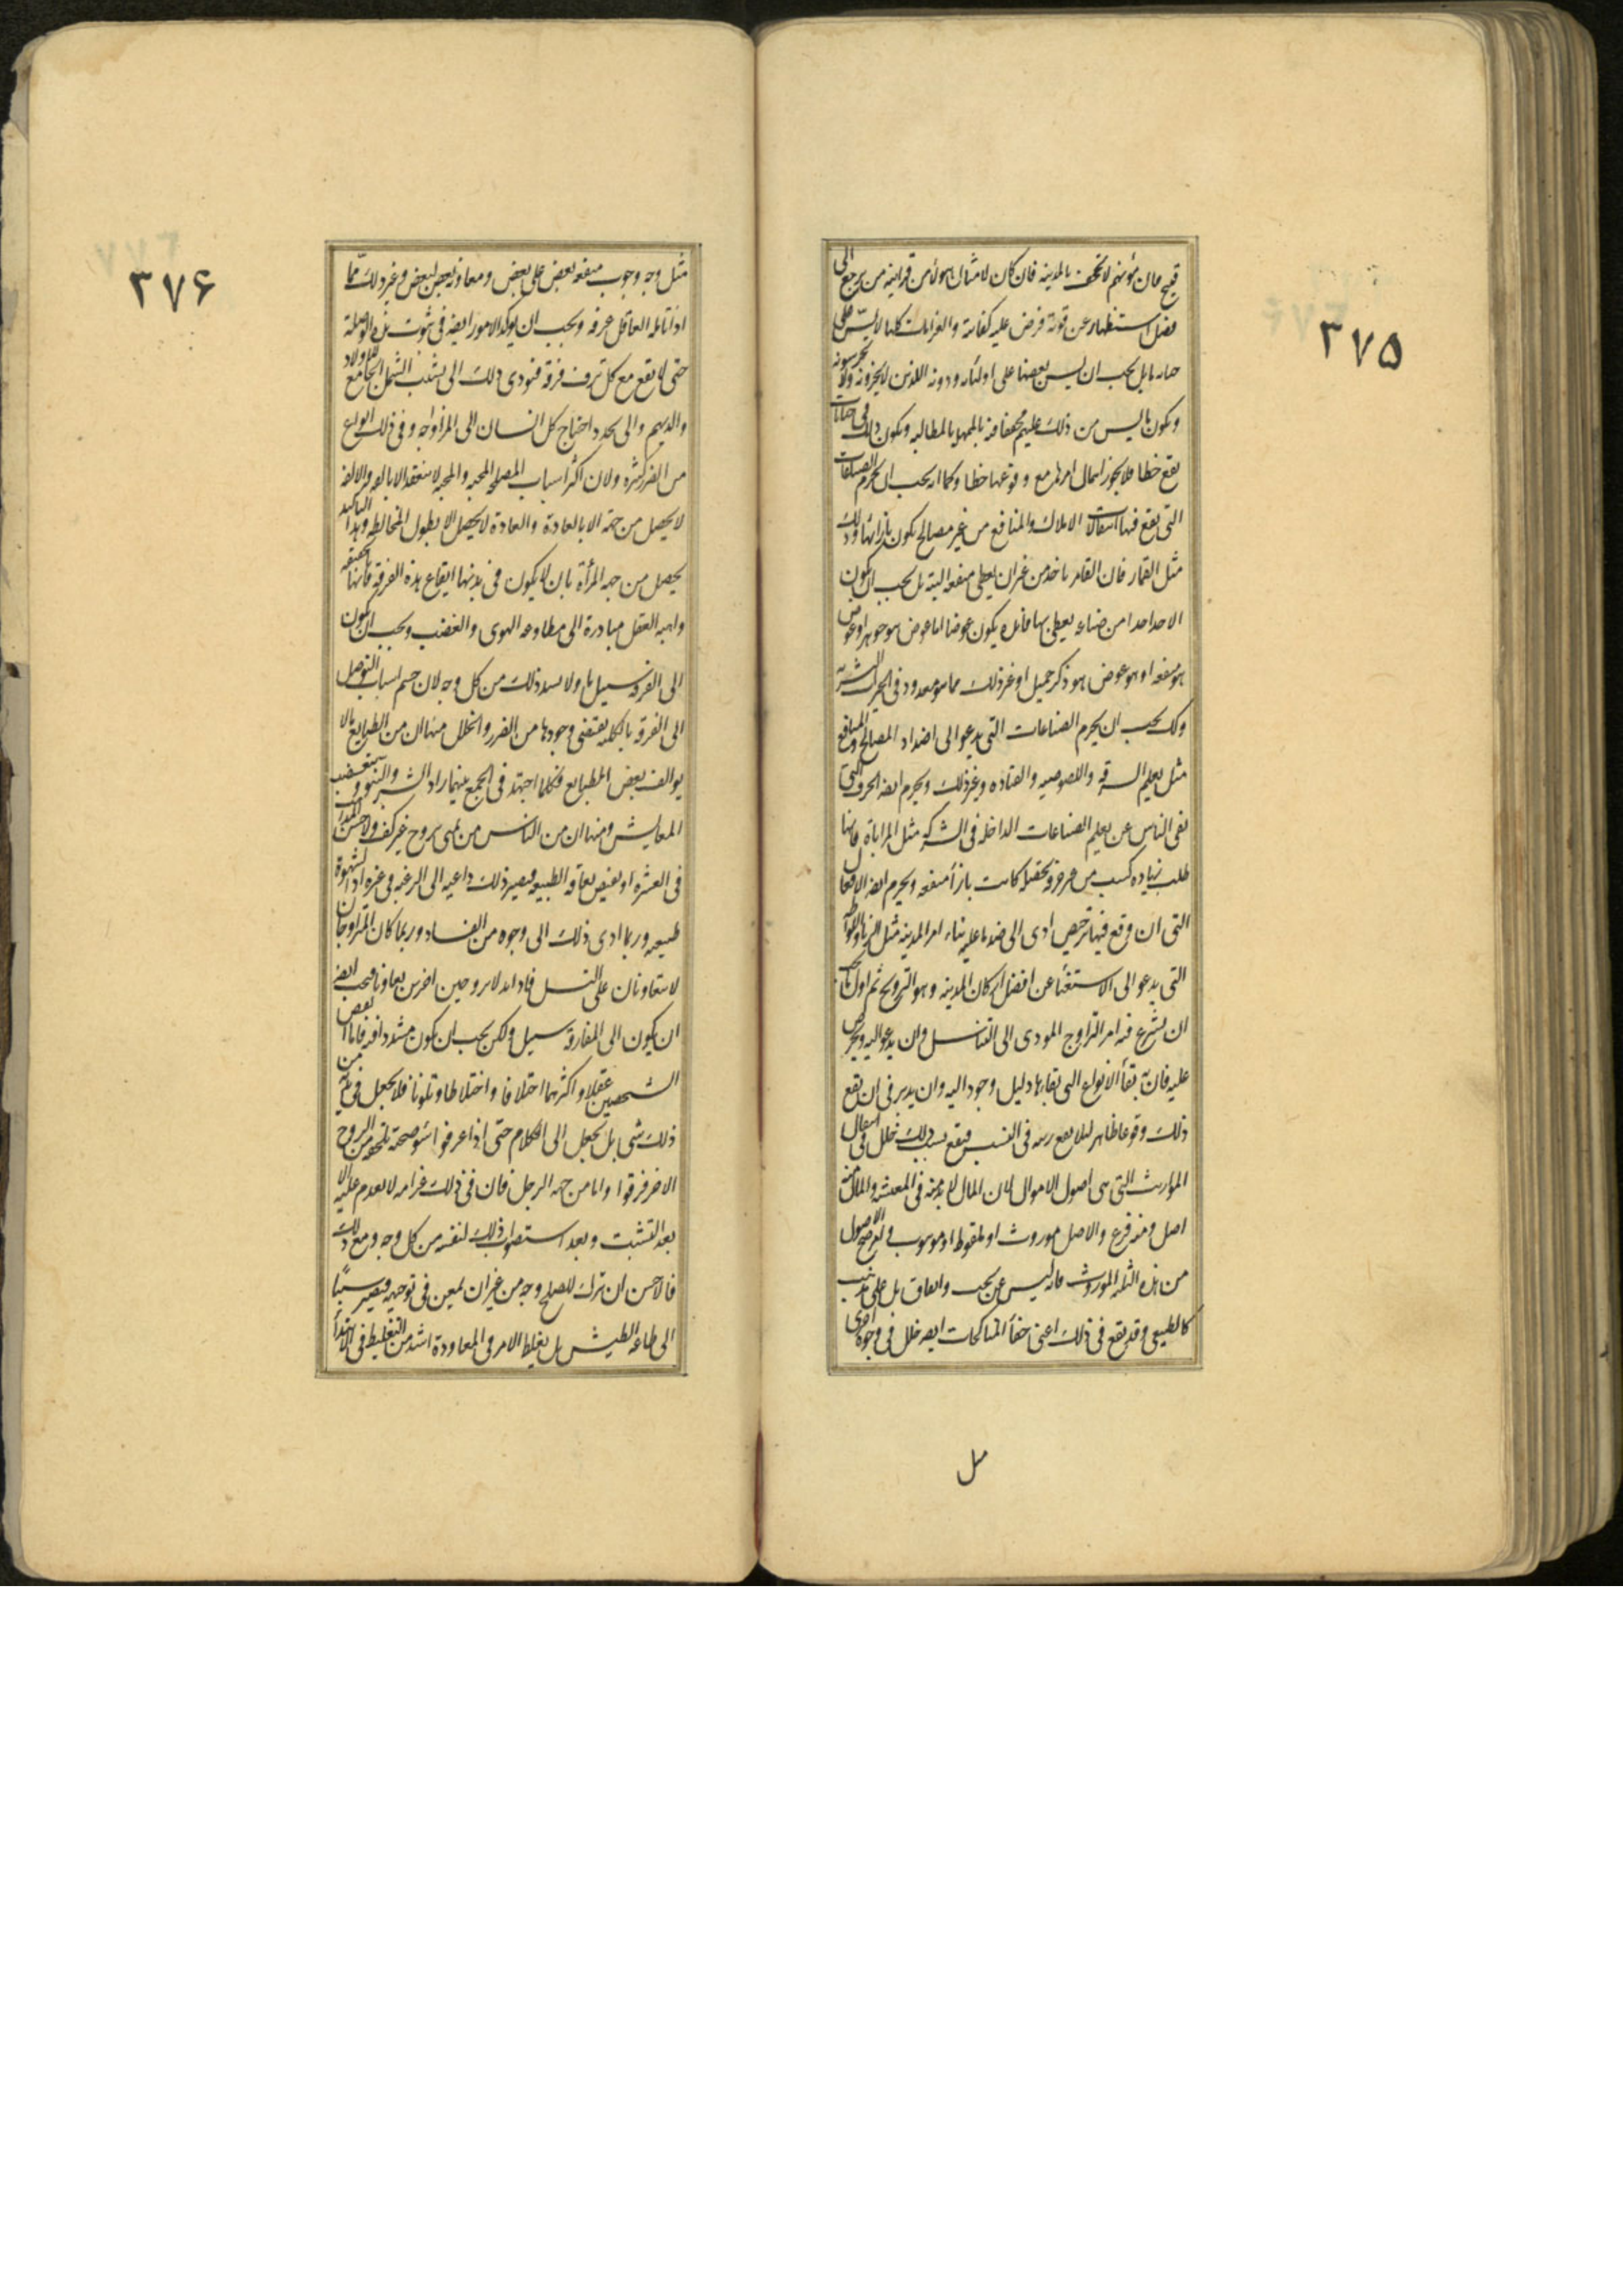 ٣٧۵
قبيح فان مؤنتهم لا تجحف بالمدينه فان كان لامثال هؤلاء من قرابته من يرجع الى
فضل استظهار عن قوته فرض عليه كفايته والغرامات كلها لا يسن على
بل يجب ان يسن بعضها على اوليائه وذويه الذين لا يزجرونه ولا يحرسونه
ويكون ما يسن من ذلك عليهم مخففا فيه بالمهله بالمطالبه ويكون ذلك فى جنايات
يقع خطا فلا يجوز اهمال امرها مع وقوعها خطا وكما انه يجب ان يحرم الصناعات
التى يقع فيها انتقالات الاملاك والمنافع من غير مصالح يكون بازائها وذلك
مثل القمار فان القامر ياخذ من غير ان يعطى منفعه البته بل يجب ان يكون
الاخذ اخذا من صناعه يعطى بها فايده يكون عوضا اما عوض هو جوهر او عوض
هو منفعه او هو عوض هو ذكر جميل او غير ذلك مما هو معدود فى الخيرات البشريه
وكك يجب ان يحرم الصناعات التى يدعو الى اضداد المصالح والمنافع
مثل تعليم السرقه واللصوصيه والقياده وغير ذلك ويحرم ايضه الحرف التى
يغنى الناس عن تعليم الصناعات الداخله فى الشركه مثل المراباة فانها
طلب زياده كسب من غير حرفه تحصله وان كانت بازاء منفعه ويحرم ايضه الافعال
التى ان وقع فيها ترخيص ادى الى ضد ما عليه بناء امر المدينه مثل الزنا واللواطه
التى يدعو الى الاستغناء عن افضل اركان المدينه وهو التزويج ثم اول ما يجب
ان يشرع فيه امر التزاوج المودى الى التناسل وان يدعو اليه ويحرص
عليه فان به بقاء الانواع التى بقاءها دليل وجود اليه وان يدبر فى ان يقع
ذلك وقوعا ظاهرا لئلا يقع ريبه فى النسب فيقع بسبب ذلك خلل فى انتقال
المواريث التى هى اصول الاموال لان المال لا بد منه فى المعيشه والمال منه
اصل ومنه فرع والاصل موروث او ملقوط او موهوب واصح الاصول
من هذه الثلثه الموروث فانه ليس عن بخت واتفاق بل على مذهب
كالطبيعى وقد يقع فى ذلك اعنى خفاء المناكحات ايضه خلل فى وجوه اخرى
مثل
٣٧۶
مثل وجه وجوب منفعه بعض على بعض ومعاونه بعض لبعض وغير ذلك مما
اذا تامله العاقل عرفه ويجب ان يوكد الامور ايضه فى ثبوت هذه الوصلة
حتى لا يقع مع كل نزق فرقه فيودى ذلك الى تشتت الشمل الجامع للاولاد
والديهم والى تجدد احتياج كل انسان الى المزاوجه وفى ذلك انواع
من الضرر كثره ولان اكثر اسباب المصلحه المحبه والمحبه لا ينعقد الا بالالفه والالفه
لا يحصل من جهة الا بالعادة والعادة لا يحصل الا بطول المخالطه وهذا التاكيد
يحصل من جهه المرأة بان لا يكون فى يديها ايقاع هذه الفرقه فانها بالحقيقه
واهيه العقل مبادرة الى مطاوعه الهوى والغضب ويجب ان يكون
الى الفرقه سبيل ما ولا يسد ذلك من كل وجه لان حسم اسباب التوصل
الى الفرقه بالكليه يقتضى وجوها من الضرر والخلل منها ان من الطبايع ما لا
يوالف بعض الطبايع فكلما اجتهد فى الجمع بينهما زاد الشر والنبو وتنغصت
المعايش ومنها ان من الناس من يمنى بزوج غير كفو ولا حسن المذاهب
فى العشره او بغيض تعافه الطبيعه فيصير ذلك داعيه الى الرغبه فى غيره اذ الشهوة
طبيعيه وربما ادى ذلك الى وجوه من الفساد وربما كان المتزاوجان
لا يتعاونان على النسل فاذا بدلا بزوجين اخرين تعاونا فيجب ايضه
ان يكون الى المفارقه سبيل ولكن يجب ان يكون مشددا فيه فاما انقص
الشخصين عقلا واكثرهما اختلافا واختلاطا وتلونا فلا يجعل فى يديه من
ذلك شى بل يجعل الى الحكام حتى اذا عرفوا سوء صحبة تلحقه من الزوج
الاخر فرقوا واما من جهه الرجل فان فى ذلك غرامه لا يقدم عليه الا
بعد التثبت وبعد استصواب ذلك لنفسه من كل وجه ومع ذلك
فالاحسن ان ترك للصلح وجه من غير ان يمعن فى توجيهه فيصير سببا
الى طاعه الطيش بل يغلظ الامر فى المعاودة اشد من التغليظ فى الابتداء